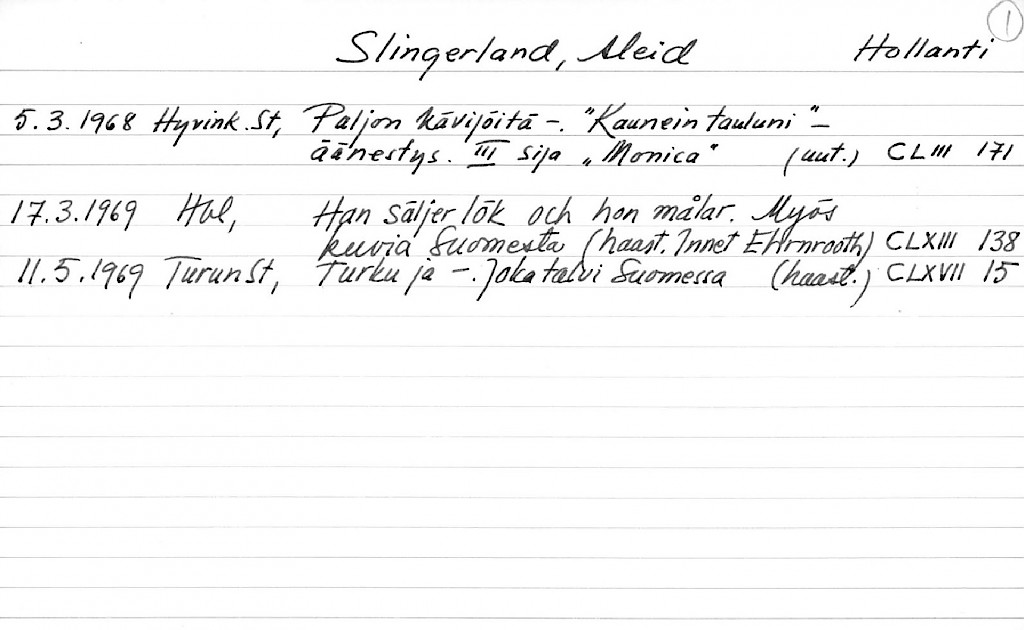 1
Slingerland, Aleid Hollanti
5.3.1968 Hyvink.St, Paljon kävijöitä -. "Kaunein tauluni" -
äänestys. III sija „Monica" (uut.) CLIII 171
17.3.1969 Hbl, Han säljer lök och hon målar. Myös
kuvia Suomesta (haast. Innet Ehrnrooth) CLXIII 138
11.5.1969 TurunSt, Turku ja -. Joka talvi Suomessa (haast.) CLXVII 15